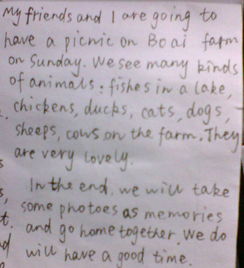 My friends and I are going to
have a picnic on Boai farm
on Sunday. We see many kinds
of animals: fishes in a lake,
chickens, ducks, cats, dogs,
sheeps, cows on the farm. They
are very lovely.
In the end, we will take
some photoes as memories
and go home together. We do
will have a good time.